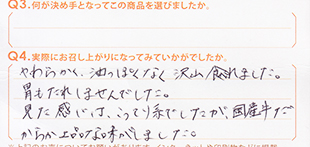 Q3.何が決め手となってこの商品を選びましたか。
Q4.実際にお召し上がりになってみていかがでしたか。
やわらかく、油っぽくなく 沢山 食れました。
胃もたれしませんでした。
見た感じは、こってり系でしたが、国産牛だ
からか上品な味がしました。